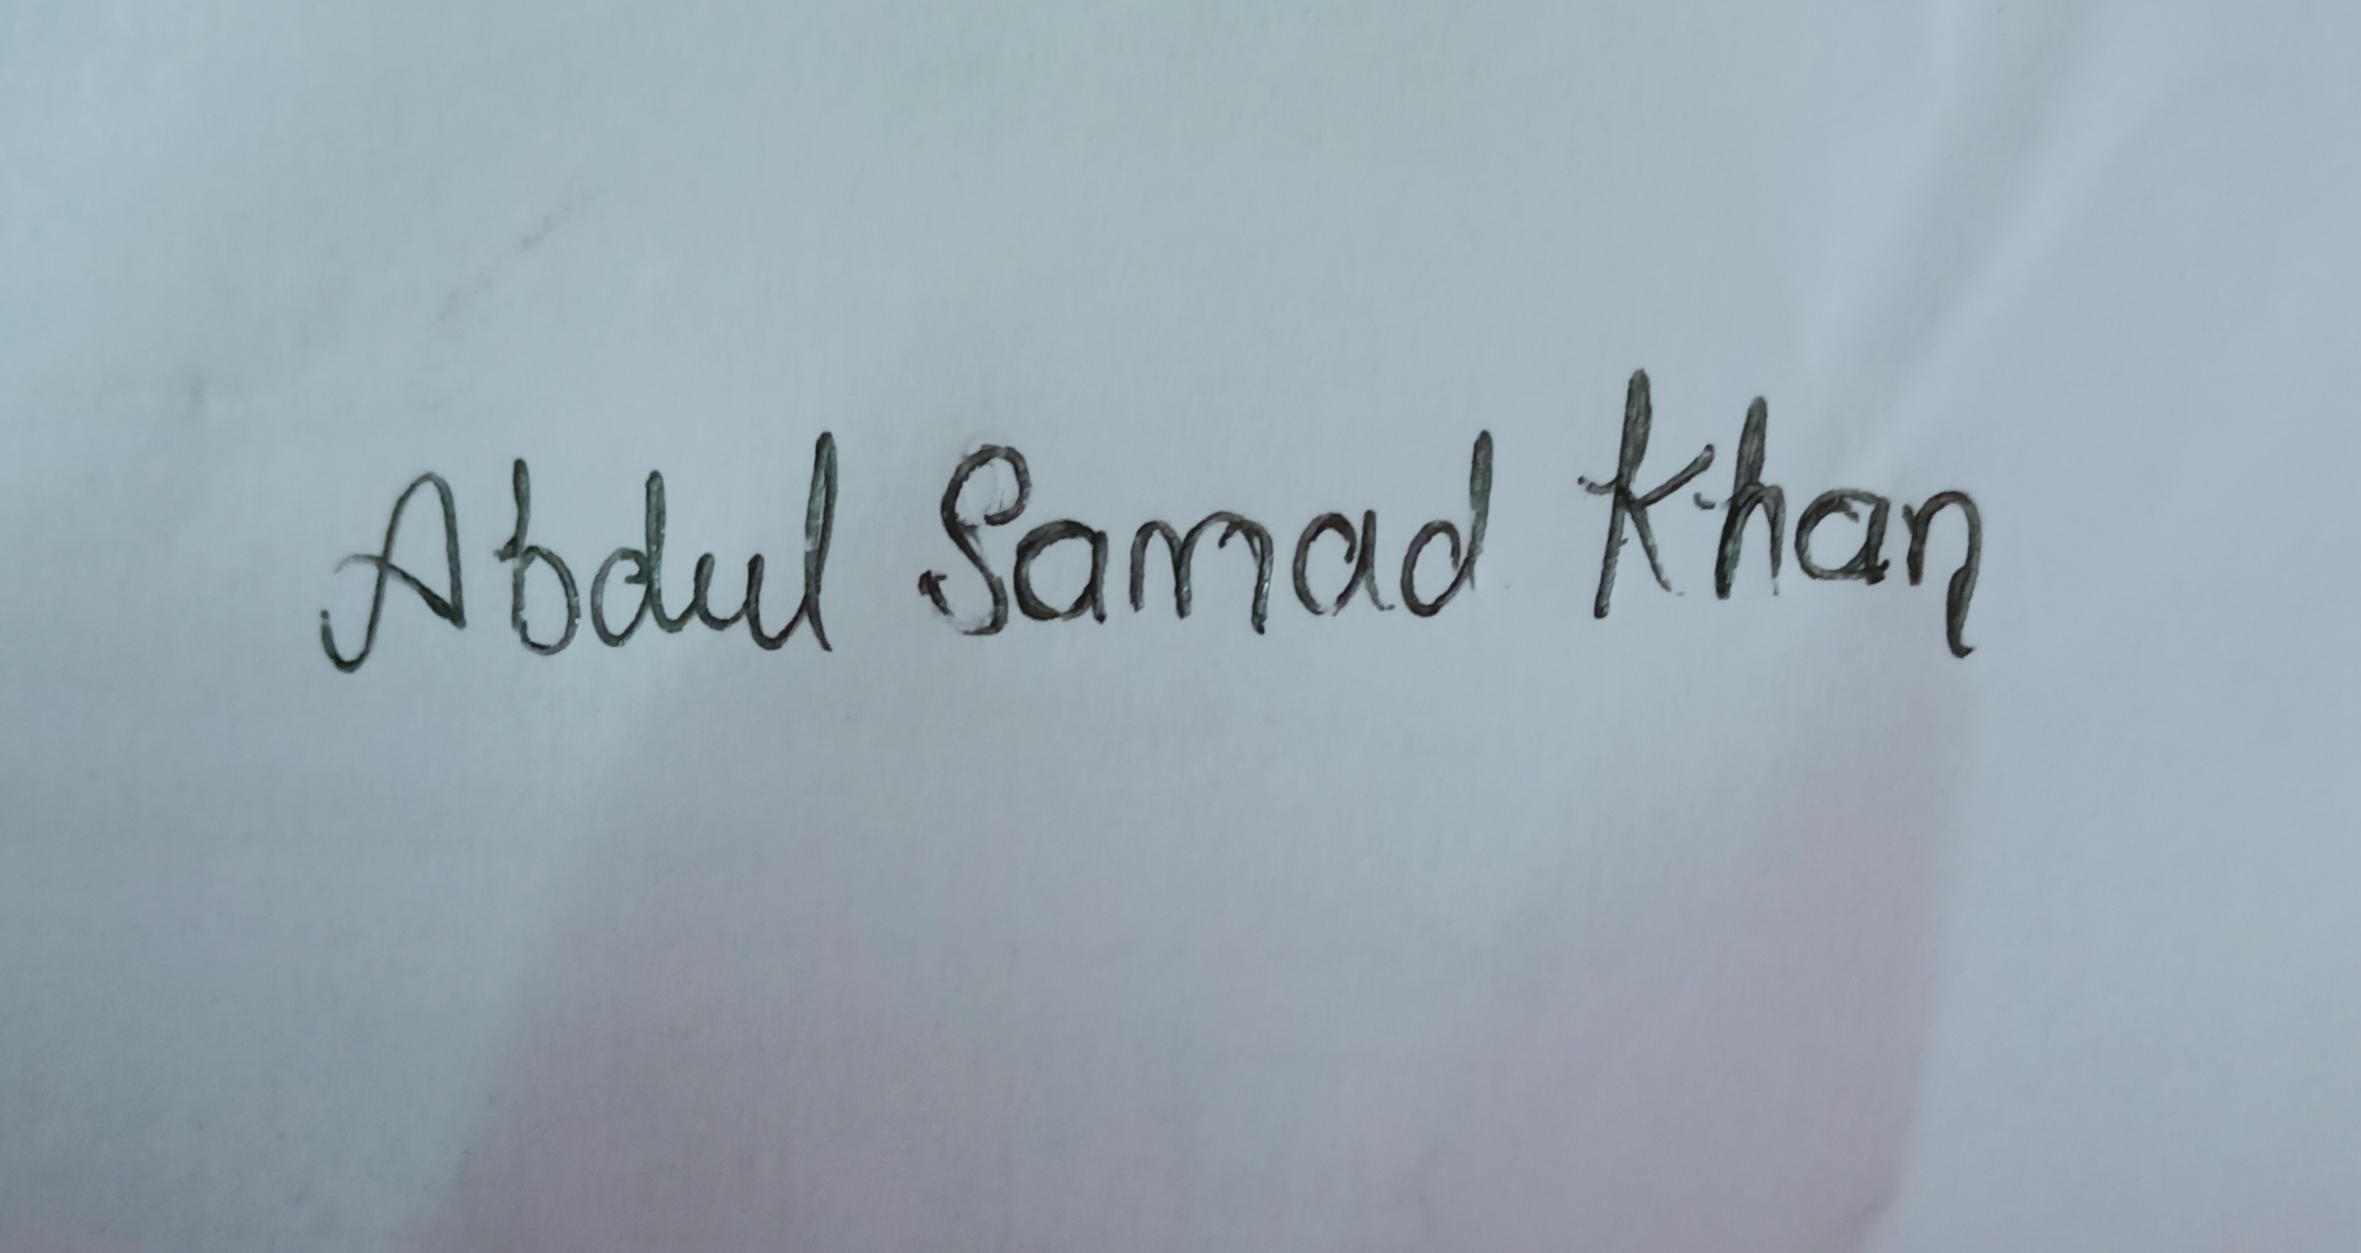 Abdul Samad Khan